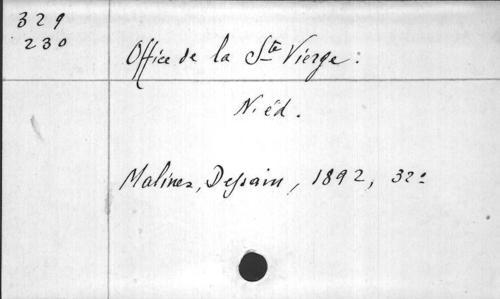 329
230
Office de la Ste Vierge :
N. éd.
Malines, Dessain, 1892, 32°